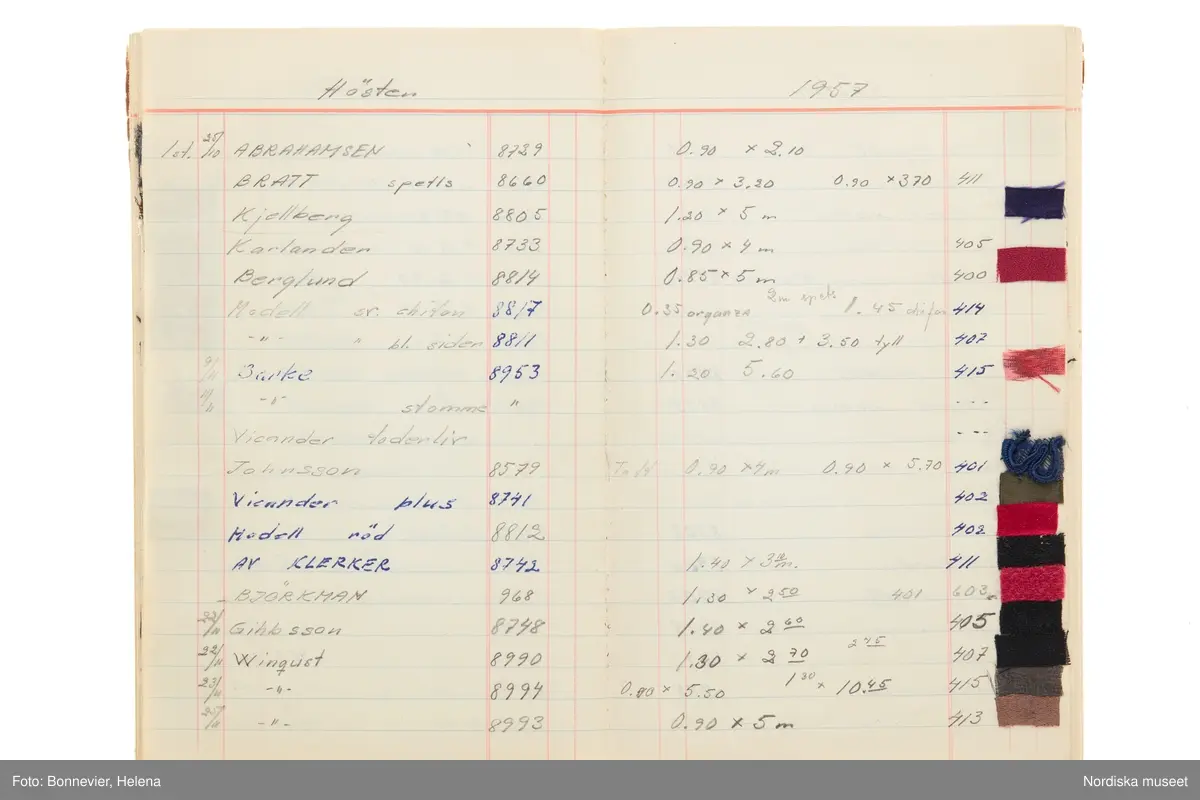 Hösten 1957
25/10 ABRAHAMSEN 8739 0.90 x 2.10
BRATT spets 8660 0.90 x 3.20 0.90 x 370 411
Kjellberg 8805 1.20 x 5 m
Karlander 8733 0.90 x 4 m 405
Berglund 8814 0.85 x 5 m 400
2m spets
Modell sv. chifon 8817 0.35 organza 1.45 chifon 414
-"- " bl. siden 8811 1.30 2.80 + 3.50 tyll 407
9/11 Burke 8953 1.20 5.60 415
11/11 -"- stomme " ---
Vicander foderliv ---
Johnsson 8579 0.90 x 4m 0.90 x 5.70 401
Vicander plus 8741 402
Modell röd 8812 402
AV KLERKER 8742 1.40 x 3 m. 411
BJÖRKMAN 968 1.30 x 2 50 401 603
22/11 Gibbsson 8748 1.40 x 2 60 405
2 45
22/11 Winqust 8990 1.30 x 2 70 407
23/11 -"- 8994 0.90 x 5.50 1 30 x 10.45 415
25/11 -"- 8993 0.90 x 5 m 413
Foto: Bonnevier, Helena Nordiska museet